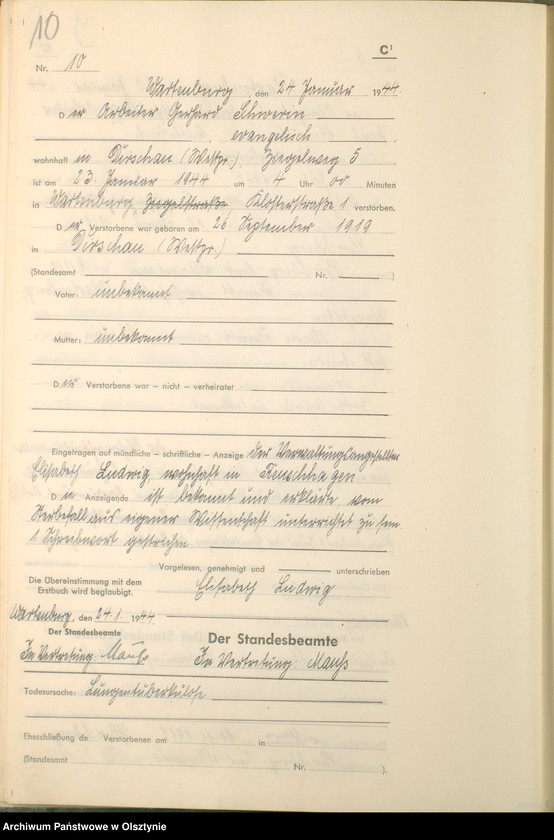 10
C¹
Nr. 10
Wartenburg, den 24 Januar 1944
Der Arbeiter Gerhard Schwerin
evangelisch
wohnhaft in Dirschau (Westpr.) Ziegelweg 5
ist am 23. Januar 1944 um 4 Uhr 00 Minuten
in Wartenburg Ziegelstraße Klosterstraße 1 verstorben.
Der Verstorbene war geboren am 26 September 1919
in Dirschau (Westpr.)
(Standesamt Nr. )
Vater: unbekannt
Mutter: unbekannt
Der Verstorbene war – nicht – verheiratet
Eingetragen auf mündliche – schriftliche – Anzeige der Verwaltungsangestellten
Elisabeth Ludwig, wohnhaft in
D Anzeigende ist bekannt und erklärte vom
Sterbefall aus eigener Wissenschaft unterrichtet zu sein
1 Schreibwort gestrichen.
Vorgelesen, genehmigt und unterschrieben
Elisabeth Ludwig
Die Übereinstimmung mit dem
Erstbuch wird beglaubigt.
Wartenburg, den 24.1. 1944
Der Standesbeamte
In Vertretung:
Der Standesbeamte
In Vertretung:
Todesursache: Lungentuberkulose
Eheschließung de Verstorbenen am in
(Standesamt Nr. ).
Archiwum Państwowe w Olsztynie